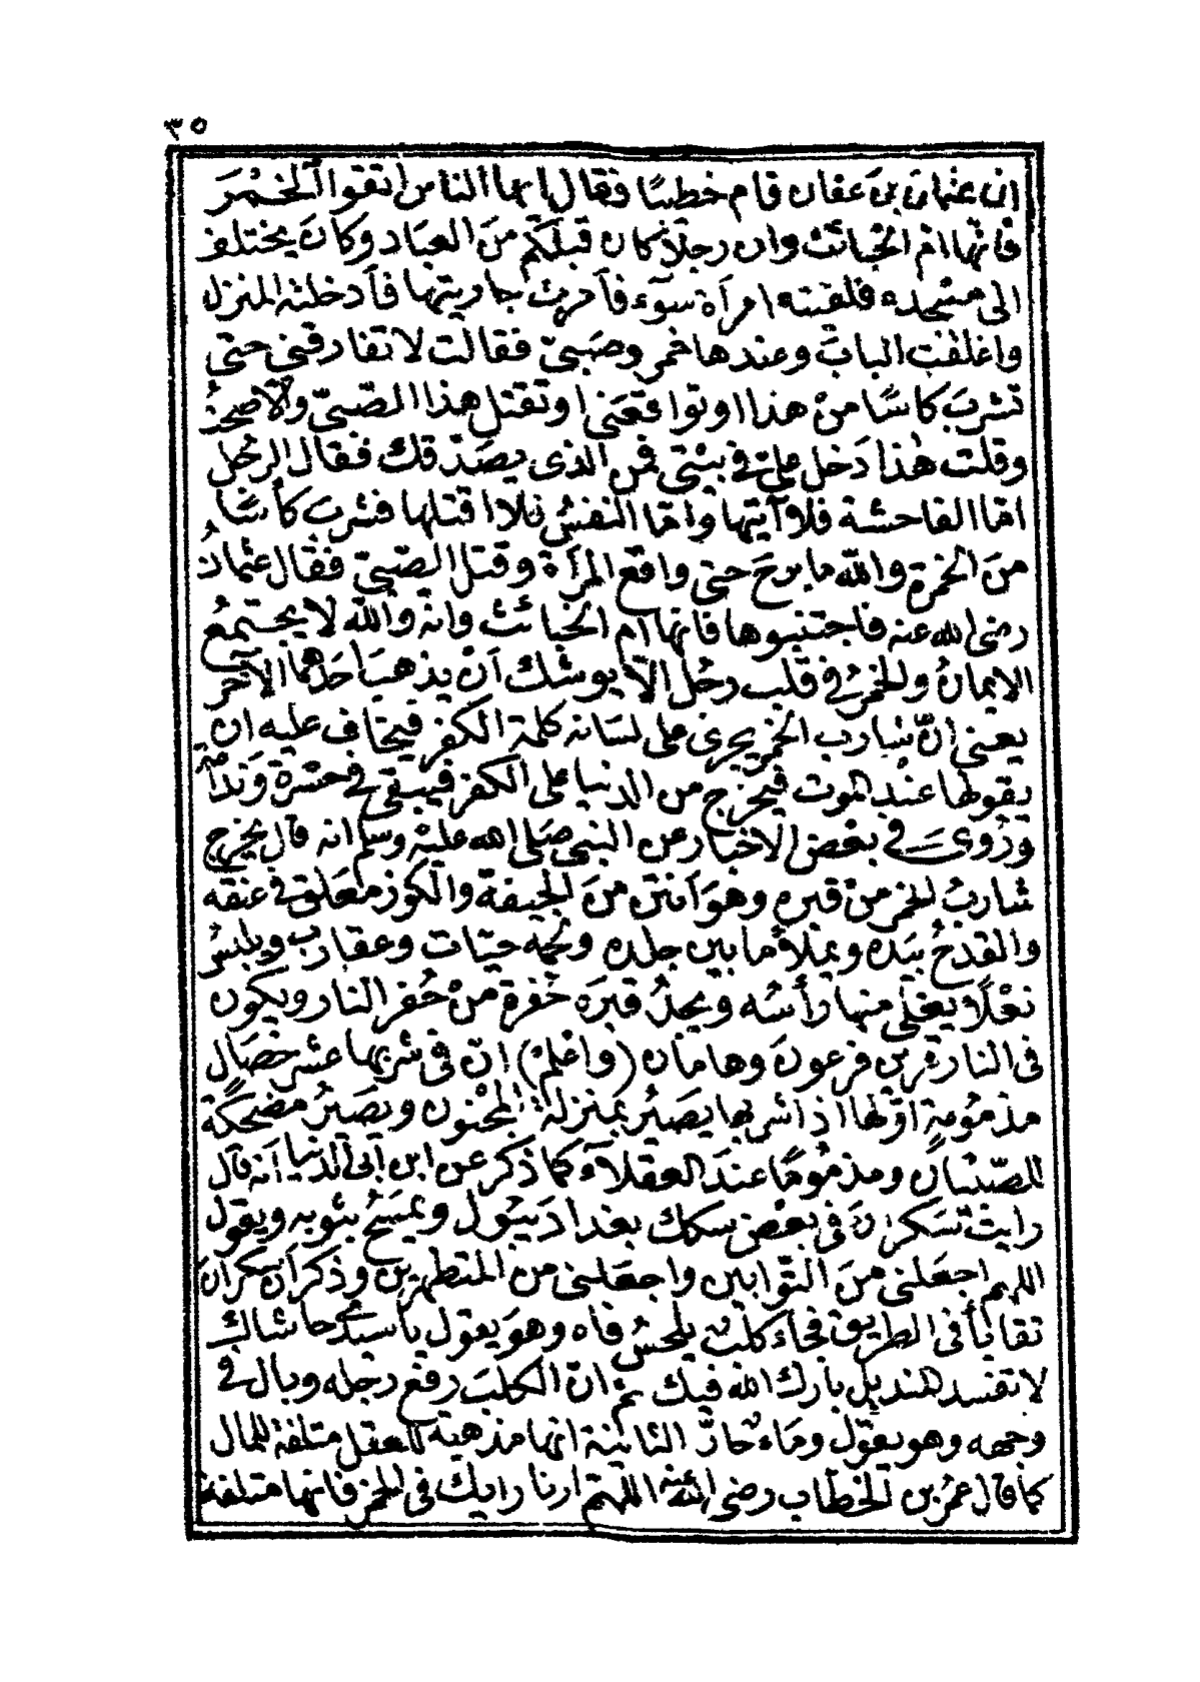 ٣٥
ان عثمان بن عفان قام خطيبًا فقال يا ايها الناس اتقوا الخمْرَ
فانّها امّ الخبائث وان رجلًا كان قبلكم منَ العبَاد وكانَ يختلف
الى مسْجده فلقيته امرأة سوء فأمرت جاريتها فأدخلته المنزل
واغلقت البابَ وعندها خمر وصَبىّ فقالت لا تفارقنى حتى
تشربَ كاسًا منْ هذا او تواقعَنى او تقتل هذا الصّبىّ والّا صحتُ
وقلت هٰذا دَخل علىّ فى بيْتى فمن الذى يصَدّقك فقال الرجُل
امّا الفاحشة فلا آتيها وامّا النفسُ فلا اقتلها فشربَ كأسًا
منَ الخمرة والله ما برحَ حتى واقعَ المرْأة وقتل الصّبىّ فقال عثمانُ
رضى الله عنه فاجتنبوها فانها امّ الخبائث وانه والله لا يجتمعُ
الايمانُ والخمرُ فى قلب رجُل الّا يوشك اَنْ يذهبَ احَدهما الآخر
يعنى انّ شارب الخمر يجرى على لسَانه كلمة الكفر فيخاف عليه ان
يقولها عنْد الموت فيخرج من الدنيا على الكفر فيبقى فى حسْرة وَندامة
ورُوىَ فى بعْض الاخبَار عن النبى صَلى الله عليْه وسلم انه قال يخرج
شاربُ الخمر منْ قبره وهوَ اَنتن منَ الجيفة والكوز معَلق فى عنقه
والقدحُ بيَده ويملأ ما بين جلده ولحمه حيّات وعقارب ويلبسُ
نعْلًا يغلى منها رأسُه ويجدُ قبرَه حُفرة منْ حُفر النار ويكون
فى النار قرين فرعونَ وهامان (واعْلمْ) انّ فى شربها عشر خصَال
مذمُومة اوّلها اذا شربها يصَيرُ بمنزلة المجْنون ويصَيرُ مضْحكةً
للصّبْيان ومذمُومًا عندَ العقلاء كما ذكر عن ابن ابى الدنيا اَنه قال
رايت سَكرانَ فى بعْض سكك بغدادَ يبُول ويمْسَحُ بثوبه ويقول
اللهم اجعَلنى منَ التوّابين واجعَلنى من المتطهرين وذكر اَن سكران
تقايأ فى الطريق فجاء كلبٌ يلحسُ فاه وهوَ يقول يا سيّدى حاشاك
لا تفسد المنديل بارك الله فيك ثم انّ الكلبَ رفعَ رجله وبال فى
وجهه وهو يقول ومَاء حَارّ الثانية انها مذهبة للعقل متلفة للمال
كما قال عمرُ بن الخطاب رضى الله عنه اللهمّ ارنا رايك فى الخمر فانها متلفة